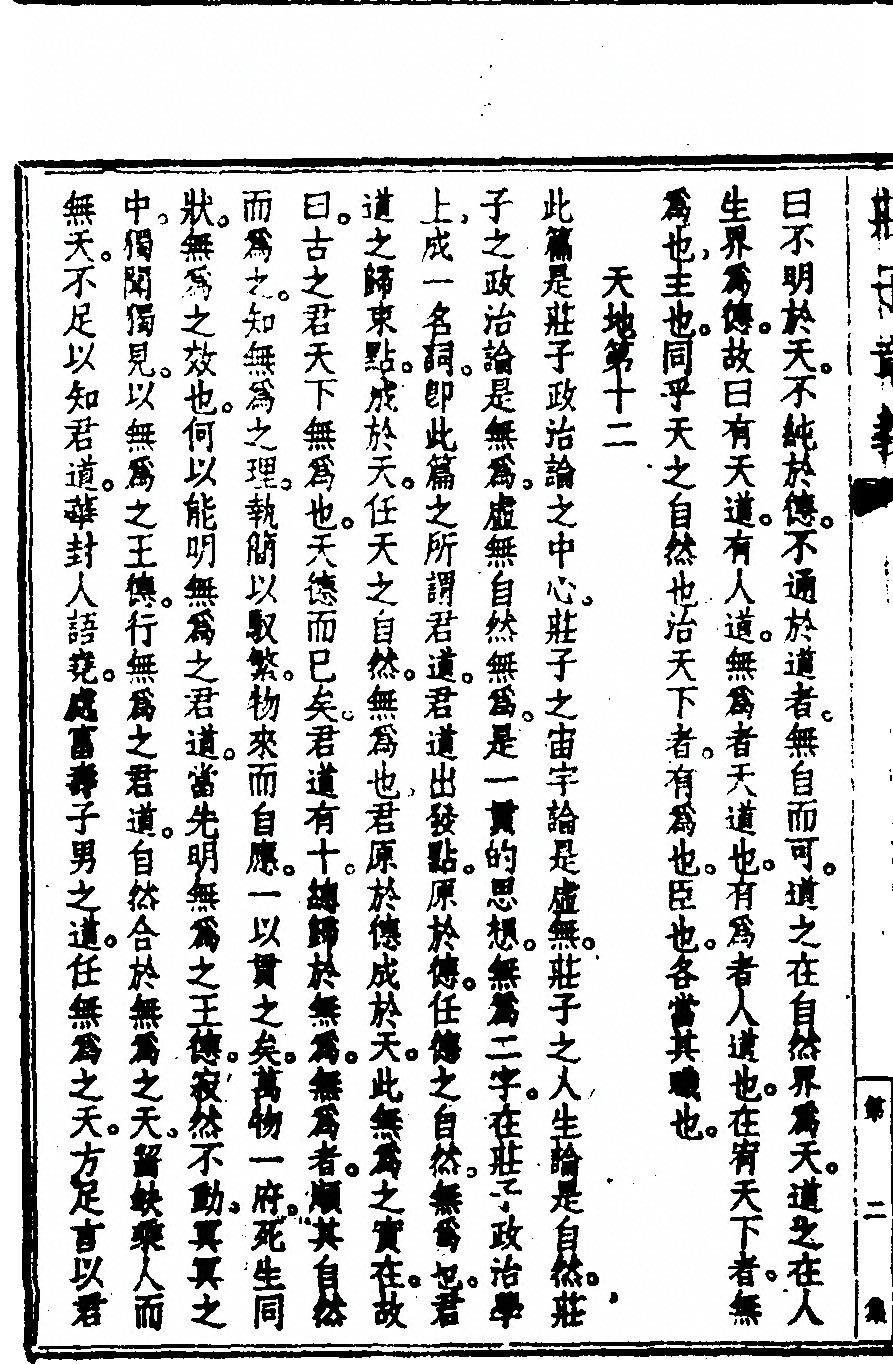 曰不明於天。不純於德。不通於道者。無自而可。道之在自然界爲天。道之在人
生界爲德。故曰有天道。有人道。無爲者天道也。有爲者人道也。在宥天下者。無
爲也。主也。同乎天之自然也治天下者。有爲也。臣也。各當其職也。
天地第十二
此篇是莊子政治論之中心。莊子之宙宇論是虛無。莊子之人生論是自然。莊
子之政治論是無爲。虛無自然無爲。是一貫的思想。無爲二字。在莊子政治學
上。成一名詞。卽此篇之所謂君道。君道出發點。原於德。任德之自然。無爲也。君
道之歸束點。成於天。任天之自然。無爲也。君原於德成於天。此無爲之實在。故
曰。古之君天下無爲也。天德而已矣。君道有十。總歸於無爲。無爲者。順其自然
而爲之。知無爲之理。執簡以馭繁。物來而自應。一以貫之矣。萬物一府。死生同
狀。無爲之效也。何以能明無爲之君道。當先明無爲之王德。寂然不動。冥冥之
中。獨聞獨見。以無爲之王德。行無爲之君道。自然合於無爲之天。齧缺乘人而
無天。不足以知君道。華封人語堯。處富壽子男之道。任無爲之天。方足言以君
第二集